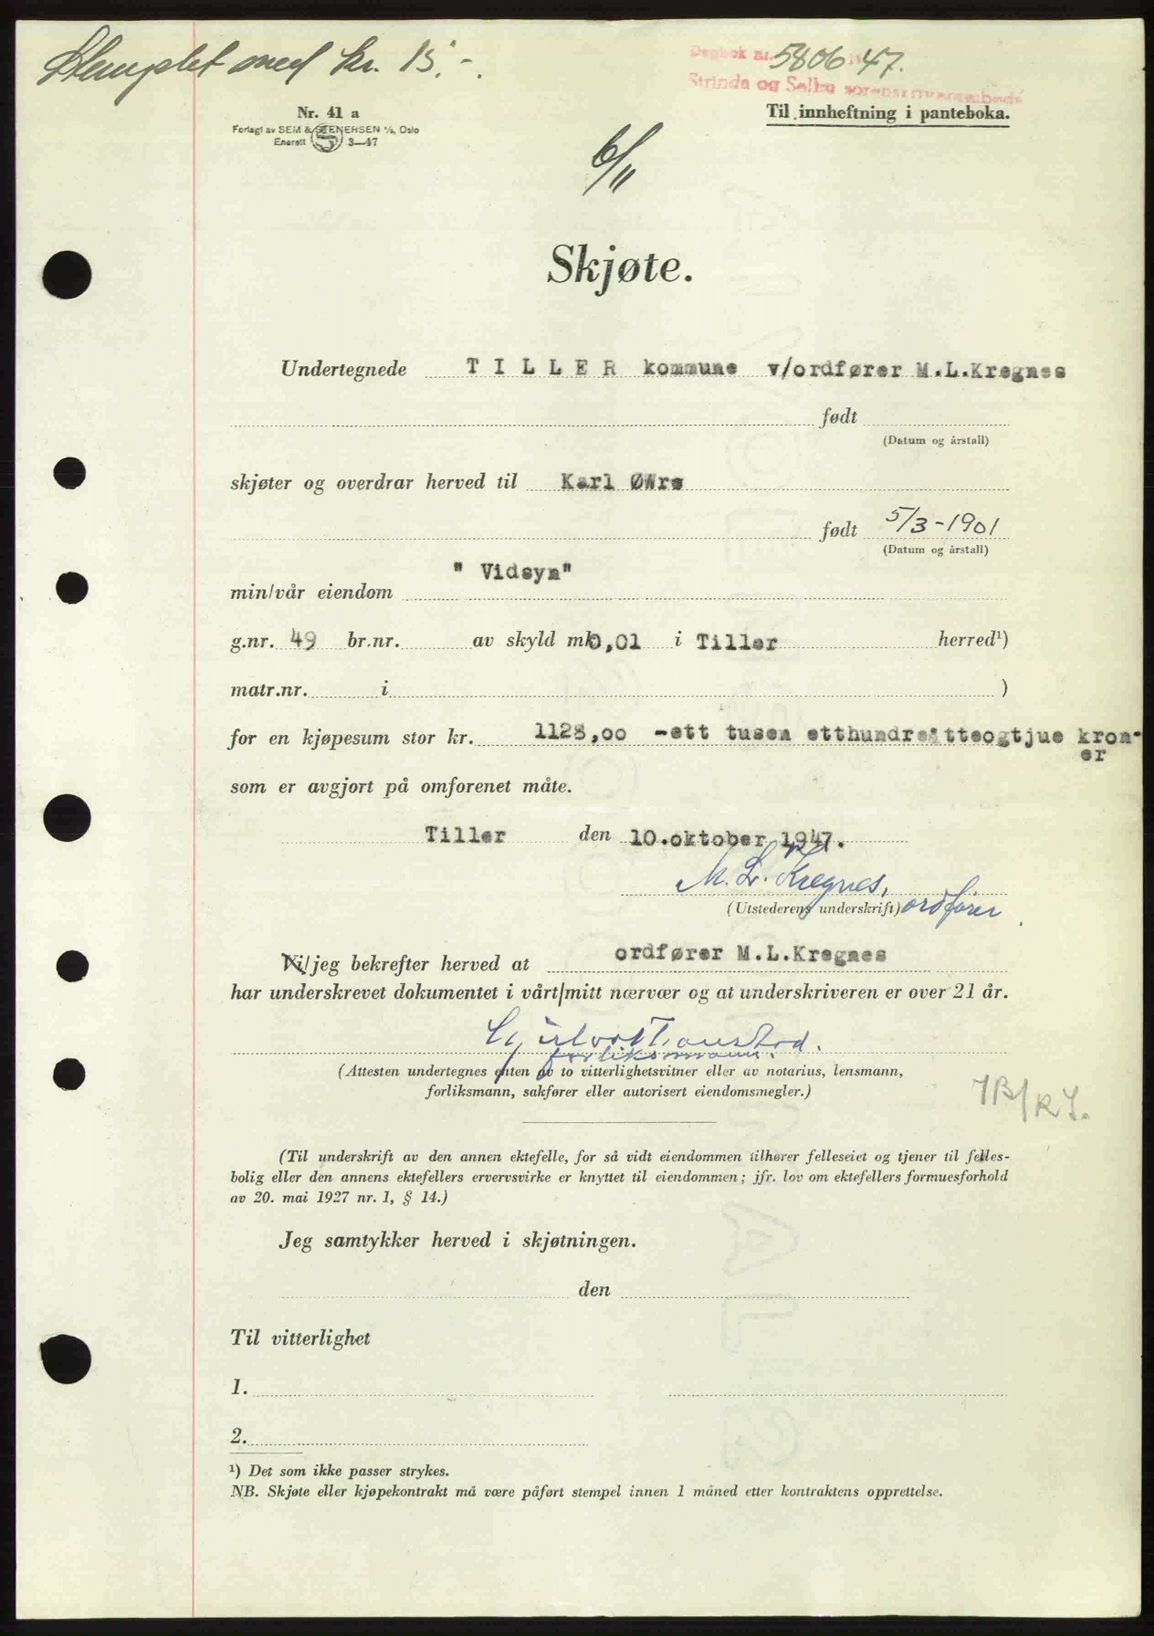 Stemplet med kr. 15.-.
Dagbok nr. 5806 47.
Strinda og Selbu sorenskriverembede
Nr. 41 a
Forlagt av SEM & STENERSEN A/S, Oslo
Enerett 3—47
Til innheftning i panteboka.
6/11
Skjøte.
Undertegnede TILLER kommune v/ordfører M.L.Kregnes
født
(Datum og årstall)
skjøter og overdrar herved til Karl
født 5/3-1901
(Datum og årstall)
min/vår eiendom " Vidsyn"
g.nr. 49 br.nr. av skyld mk 0,01 i Tiller herred¹)
matr.nr. i )
for en kjøpesum stor kr. 1128,00 -ett tusen etthundreåtteogtjue kron-
er
som er avgjort på omforenet måte.
Tiller den 10.oktober 1947.
M. L. Kregnes,
(Utstederens underskrift) ordfører
Vi/jeg bekrefter herved at ordfører M.L.Kregnes
har underskrevet dokumentet i vårt/mitt nærvær og at underskriveren er over 21 år.
forliksmann.
(Attesten undertegnes enten av to vitterlighetsvitner eller av notarius, lensmann,
forliksmann, sakfører eller autorisert eiendomsmegler.)
JB/RJ.
(Til underskrift av den annen ektefelle, for så vidt eiendommen tilhører felleseiet og tjener til felles-
bolig eller den annens ektefellers ervervsvirke er knyttet til eiendommen; jfr. lov om ektefellers formuesforhold
av 20. mai 1927 nr. 1, § 14.)
Jeg samtykker herved i skjøtningen.
den
Til vitterlighet
1.
2.
¹) Det som ikke passer strykes.
NB. Skjøte eller kjøpekontrakt må være påført stempel innen 1 måned etter kontraktens opprettelse.